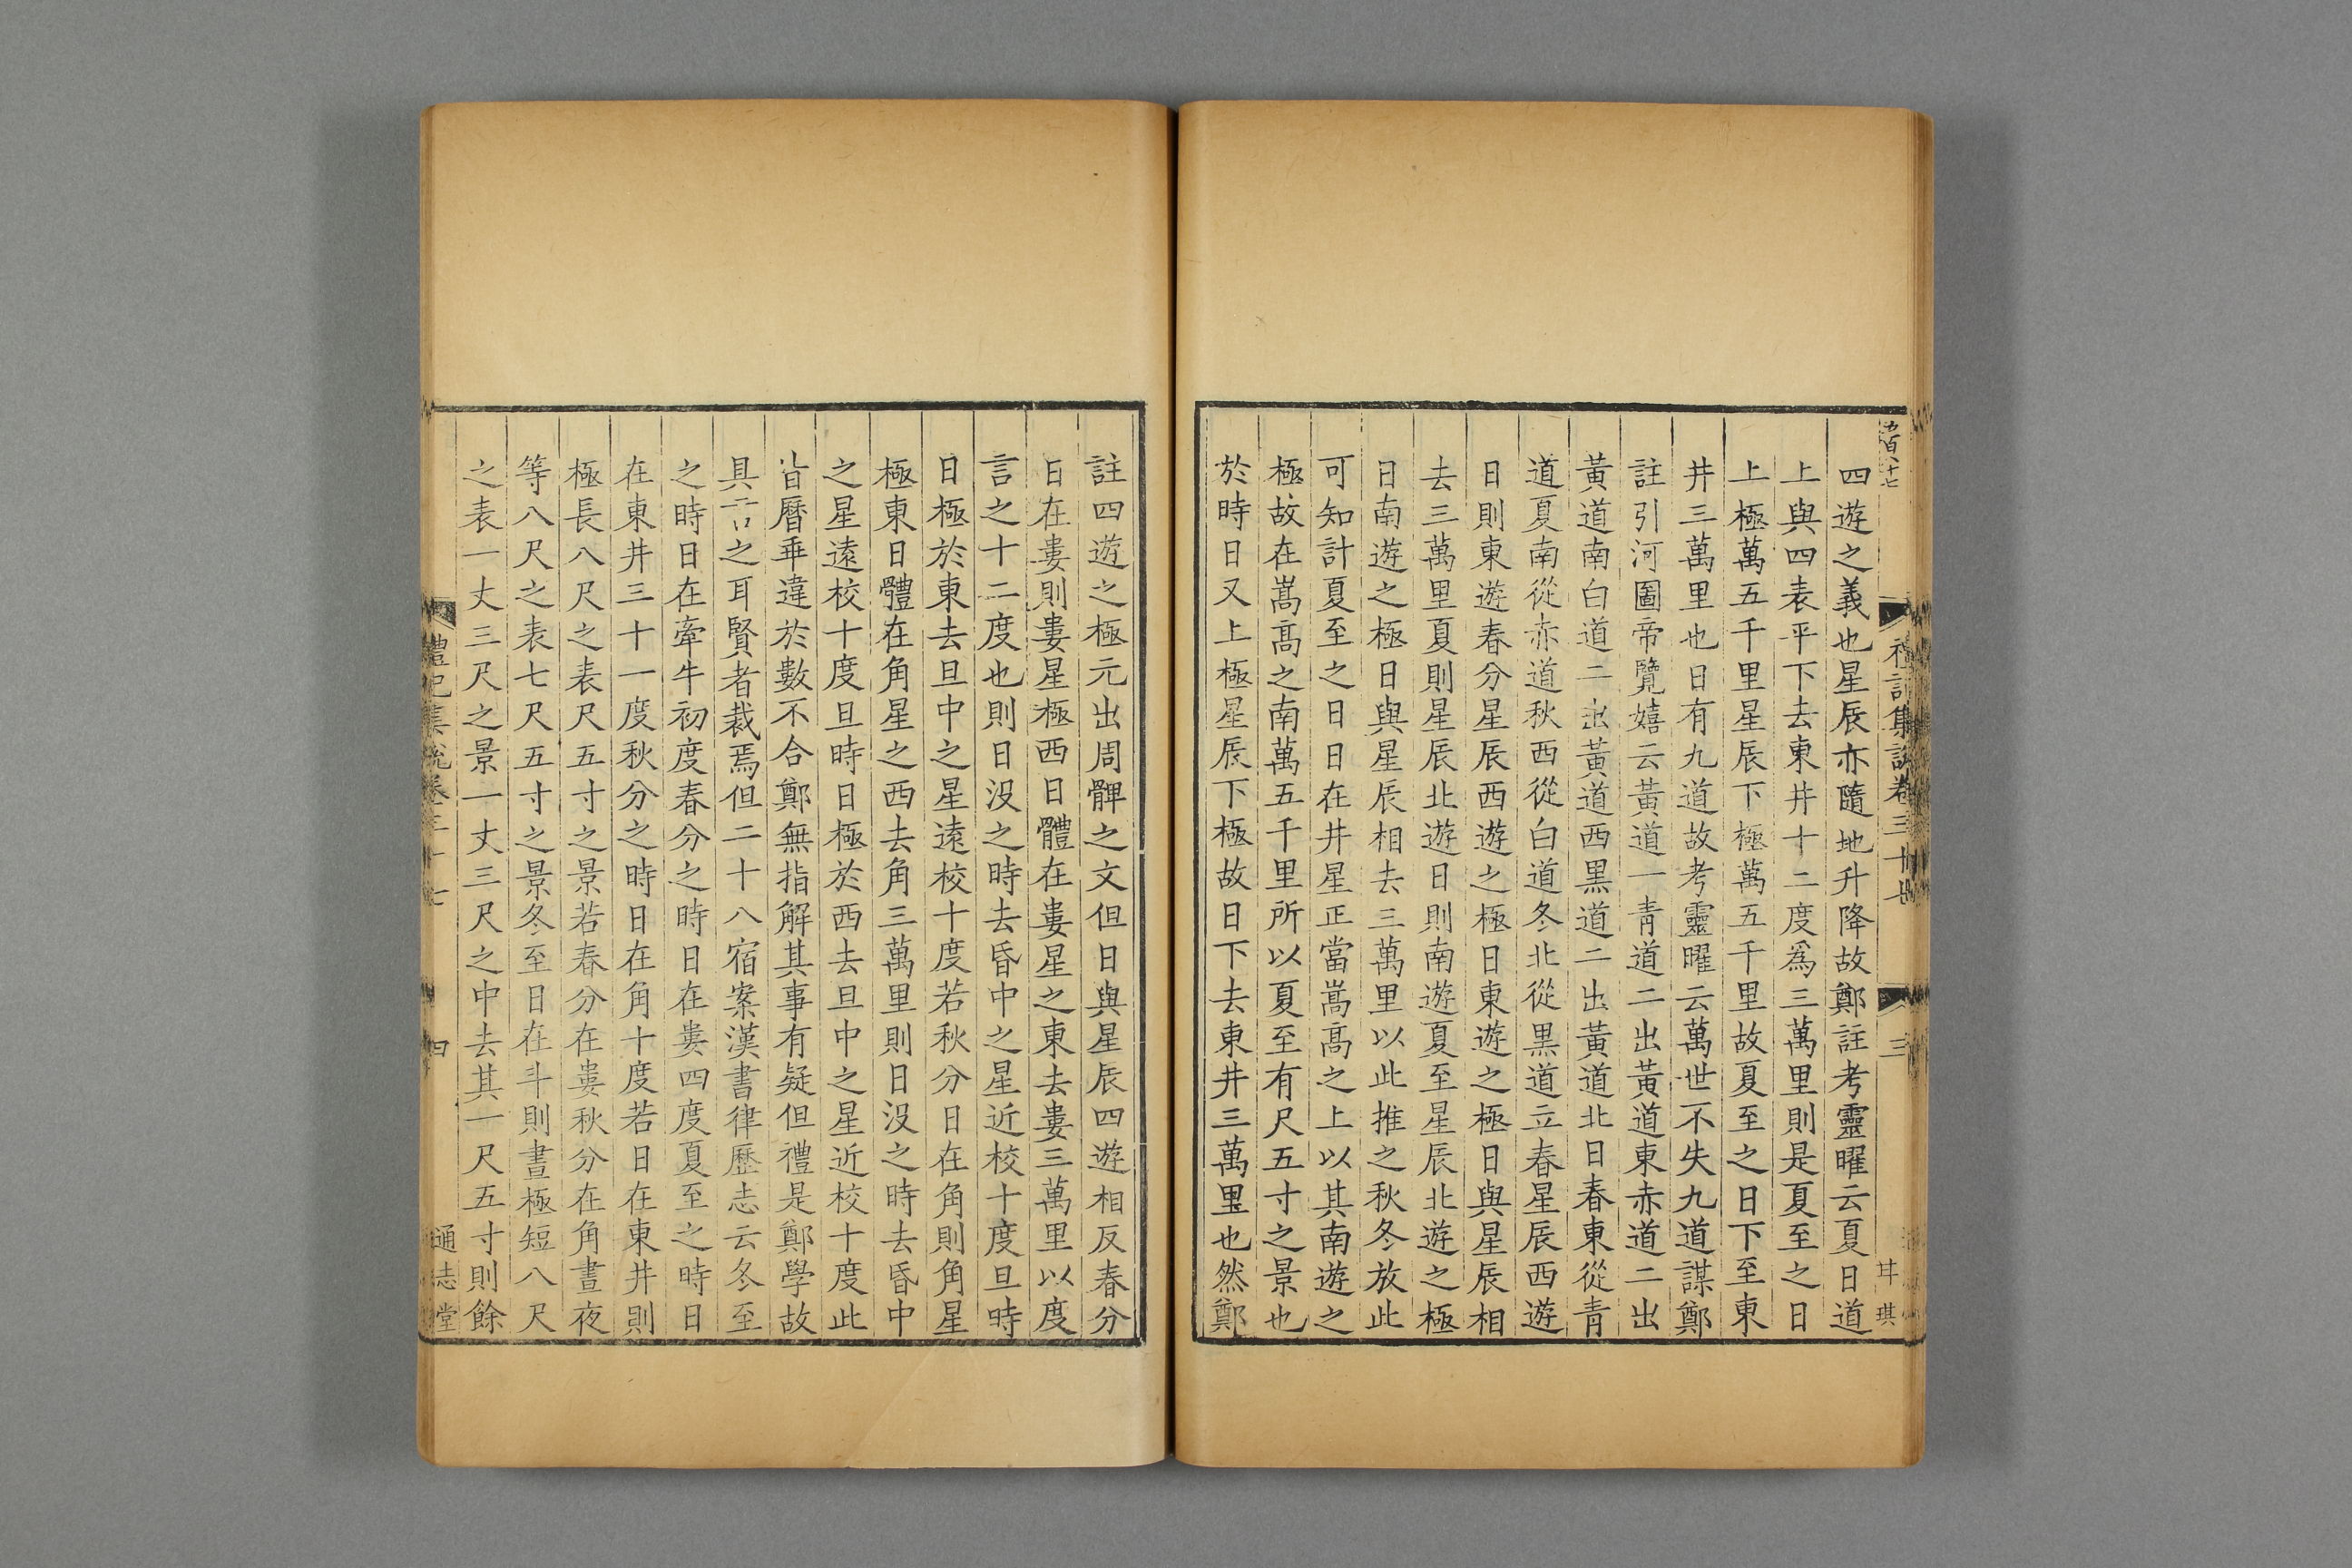 四遊之義也星辰亦隨地升降故鄭註考靈曜云夏日道
上與四表平下去東井十二度爲三萬里則是夏至之日
上極萬五千里星辰下極萬五千里故夏至之日下至東
井三萬里也日有九道故考靈曜云萬世不失九道謀鄭
註引河圖帝覽嬉云黃道一青道二出黃道東赤道二出
黃道南白道二出黃道西黑道二出黃道北日春東從青
道夏南從赤道秋西從白道冬北從黑道立春星辰西遊
日則東遊春分星辰西遊之極日東遊之極日與星辰相
去三萬里夏則星辰北遊日則南遊夏至星辰北遊之極
日南遊之極日與星辰相去三萬里以此推之秋冬放此
可知計夏至之日日在井星正當嵩高之上以其南遊之
極故在嵩高之南萬五千里所以夏至有尺五寸之景也
於時日又上極星辰下極故日下去東井三萬里也然鄭
禮記集說卷三十七
三
註四遊之極元出周髀之文但日與星辰四遊相反春分
日在婁則婁星極西日體在婁星之東去婁三萬里以度
言之十二度也則日沒之時去昏中之星近校十度旦時
日極於東去旦中之星遠校十度若秋分日在角則角星
極東日體在角星之西去角三萬里則日沒之時去昏中
之星遠校十度旦時日極於西去旦中之星近校十度此
皆曆乖違於數不合鄭無指解其事有疑但禮是鄭學故
具言之耳賢者裁焉但二十八宿案漢書律歷志云冬至
之時日在牽牛初度春分之時日在婁四度夏至之時日
在東井三十一度秋分之時日在角十度若日在東井則
極長八尺之表尺五寸之景若春分在婁秋分在角晝夜
等八尺之表七尺五寸之景冬至日在斗則晝極短八尺
之表一丈三尺之景一丈三尺之中去其一尺五寸則餘
禮記集說卷三十七
四
通志堂